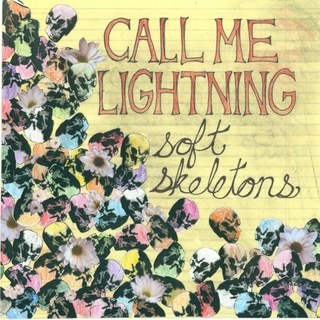 CALL ME
LIGHTNING
soft
skeletons